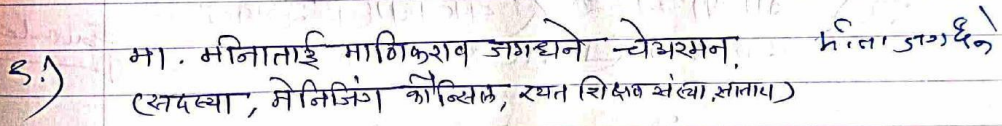 ३.) मा. मीनाताई माणिकराव जगधने चेअरमन, मीना जगधने
(सदस्या, मॅनेजिंग कौन्सिल, रयत शिक्षण संस्था, सातारा)